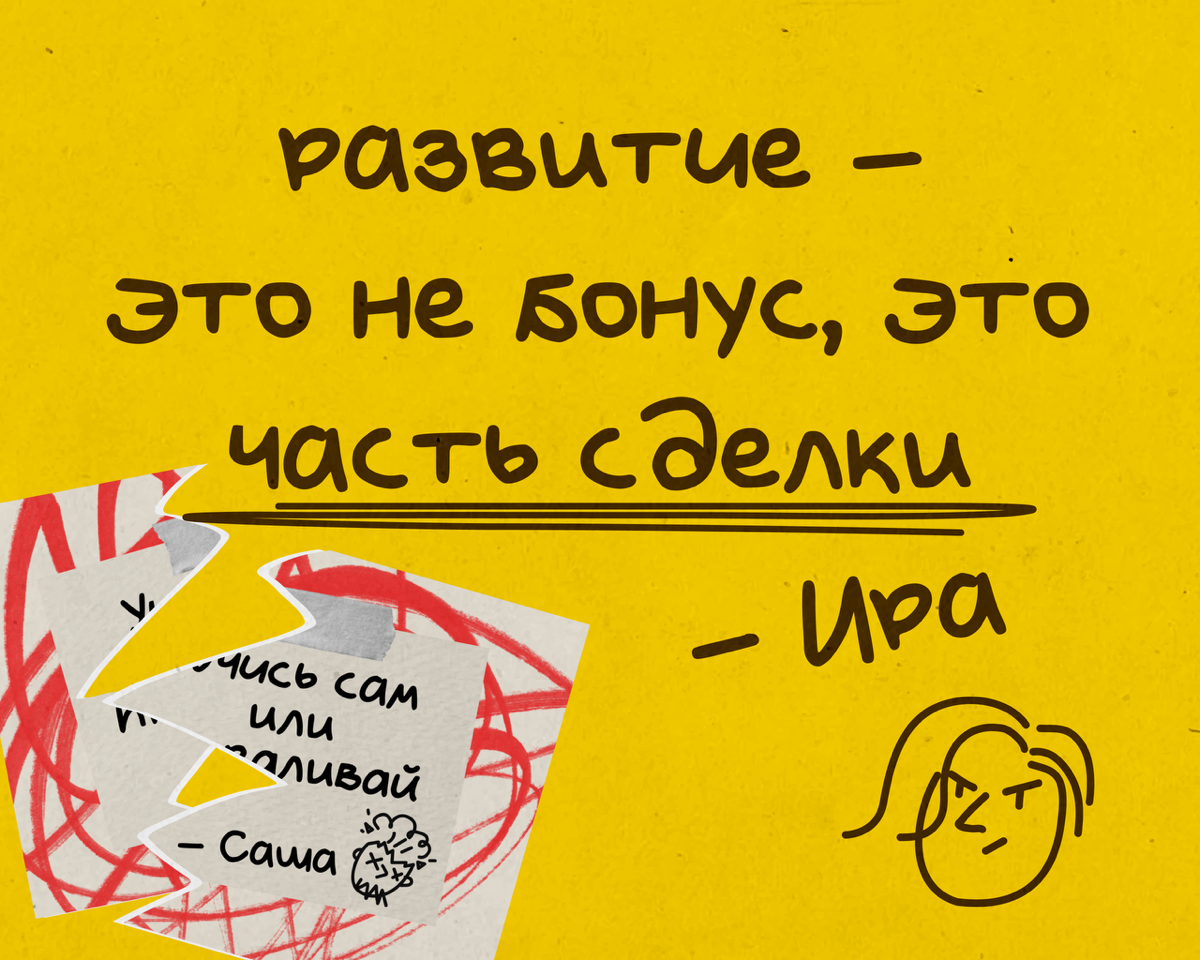 развитие –
это не бонус, это
часть сделки
– Ира
учись сам
или
– Саша